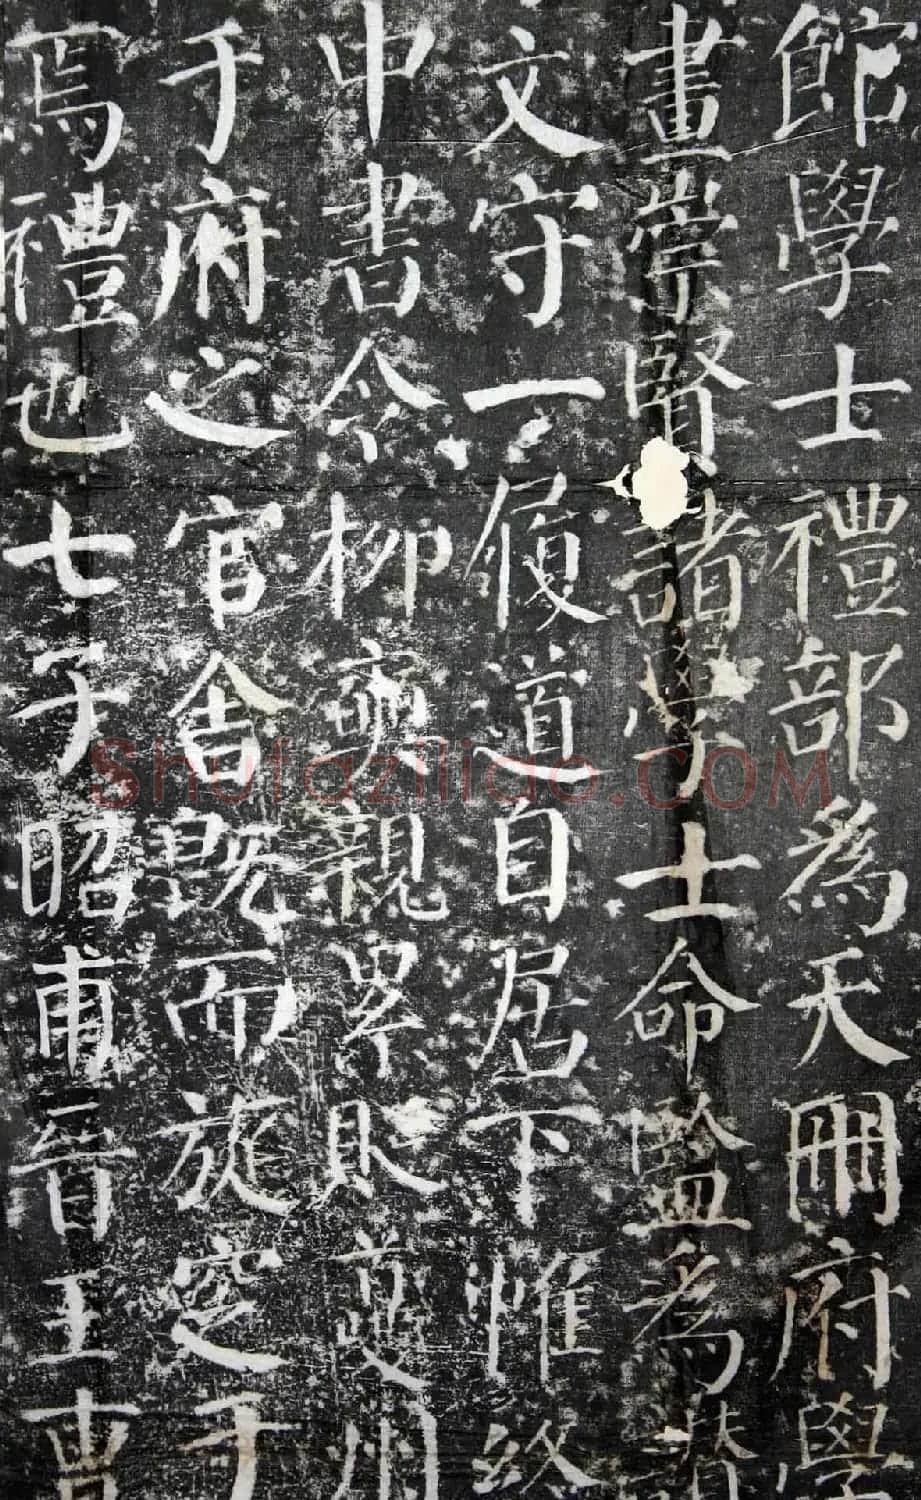 館學士禮部為天冊府學
畫崇賢諸學士命監為讃
文守一履道自居下惟終
中書令柳奭親累貶夔州
于府之官舍既而旋窆于
焉禮也七子昭甫晉王曹
Shufaziliao.COM